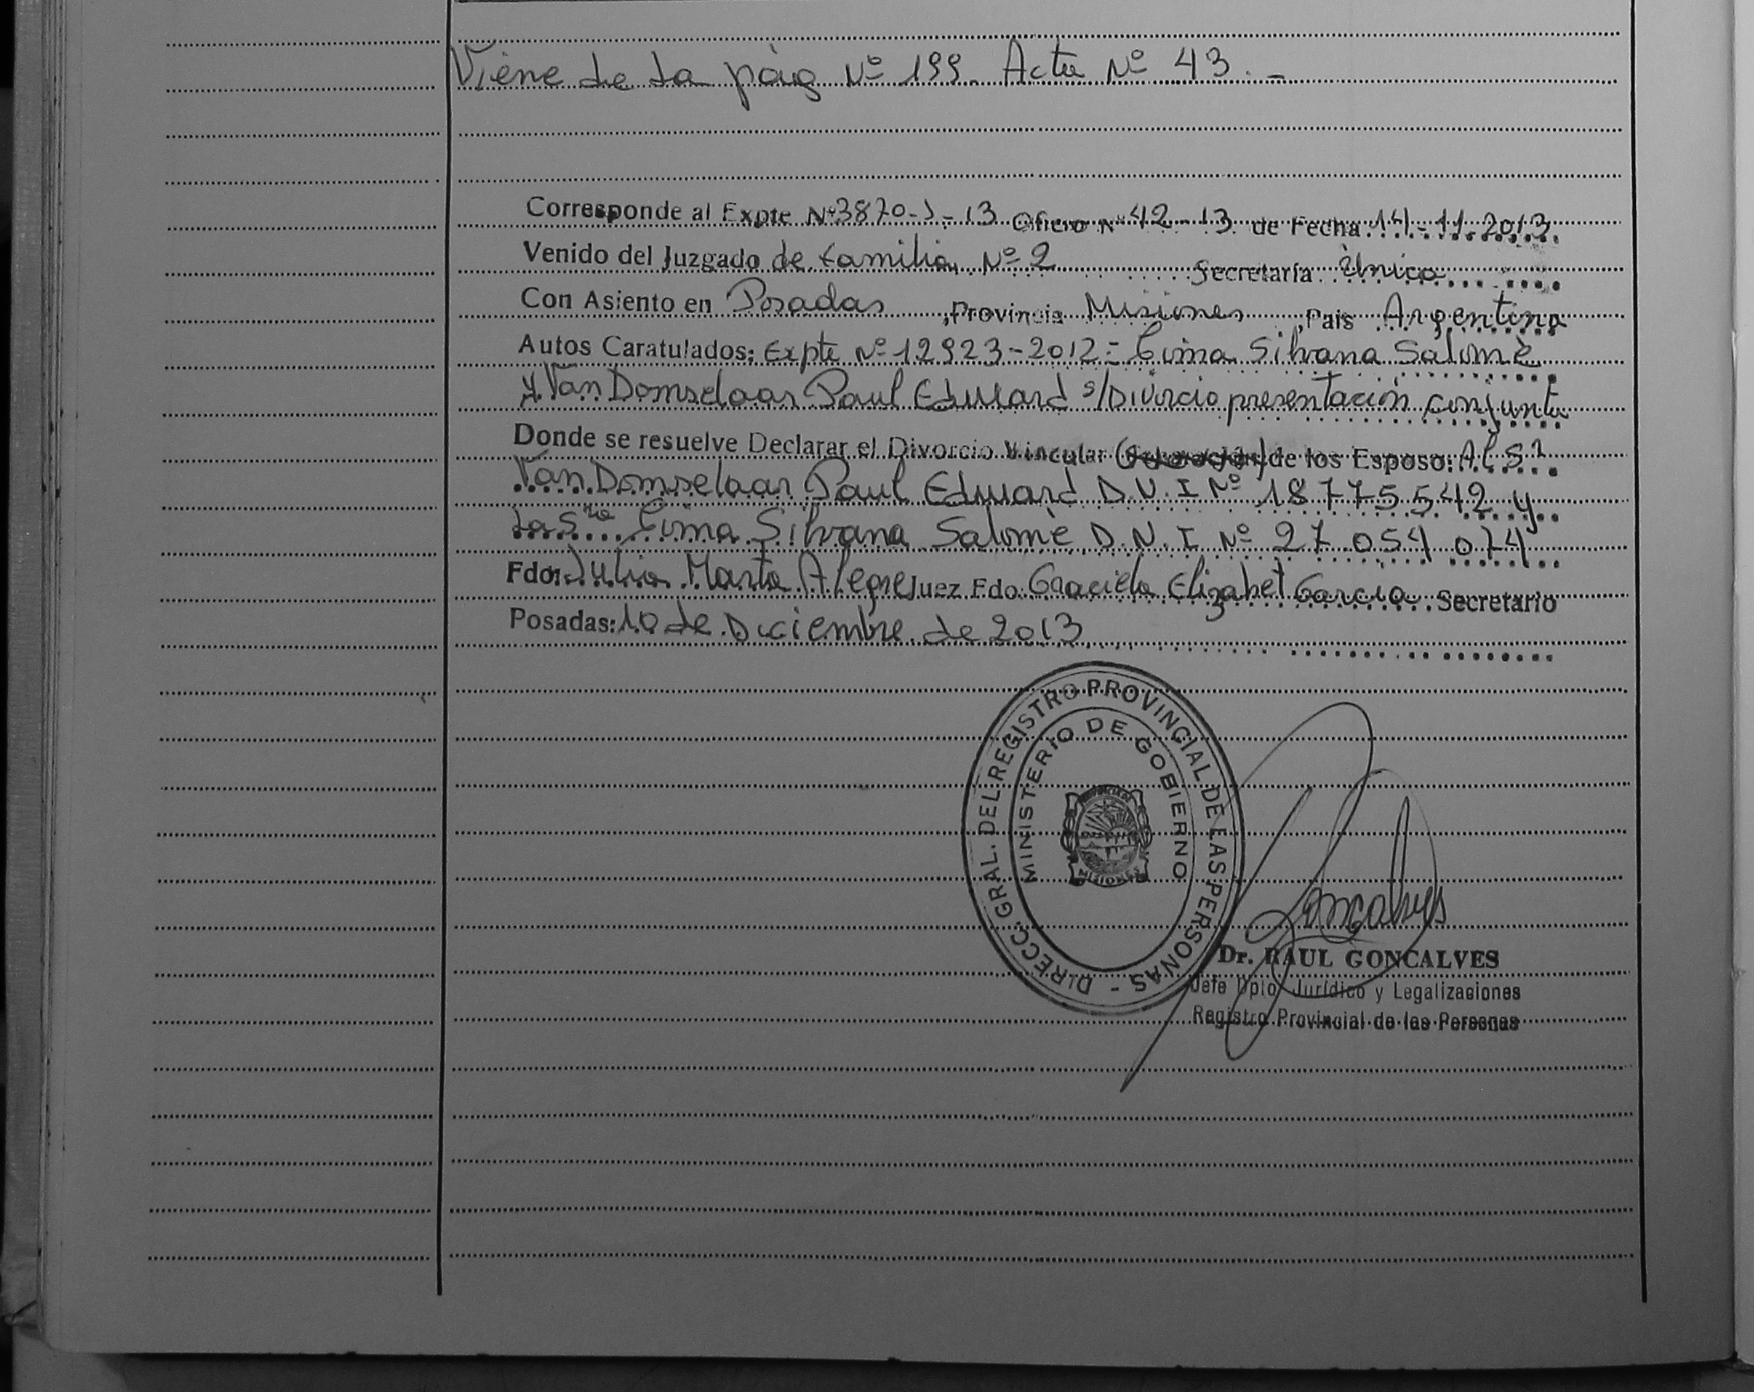 Viene de la pág Nº 199. Acta Nº 43.-
Corresponde al Expte Nº3870-J-13 Oficio Nº 42-13 de Fecha 14-11-2013.
Venido del Juzgado de familia Nº 2 Secretaría Única
Con Asiento en Posadas ,Provincia Misiones ,País Argentina
Autos Caratulados: Expte Nº 12923-2012- Silvana Salomè
y Van Domselaar Paul Edward s/Divorcio presentación conjunta
Donde se resuelve Declarar el Divorcio Vincular de los Esposo: Al Sr
Van Domselaar Paul Edward D.N.I Nº 18775542 y
la Sra Silvana Salomè D.N.I Nº 27 054 074
Fdo: Julia Marta Alegre Juez Fdo. Graciela Elizabet Garcia Secretario
Posadas: 10 de Diciembre de 2013
DIRECC. GRAL. DEL REGISTRO PROVINCIAL DE LAS PERSONAS -
MINISTERIO DE GOBIERNO
MISIONES
Goncalves
Dr. RAUL GONCALVES
Jefe Dpto. Jurídico y Legalizaciones
Registro Provincial de las Personas